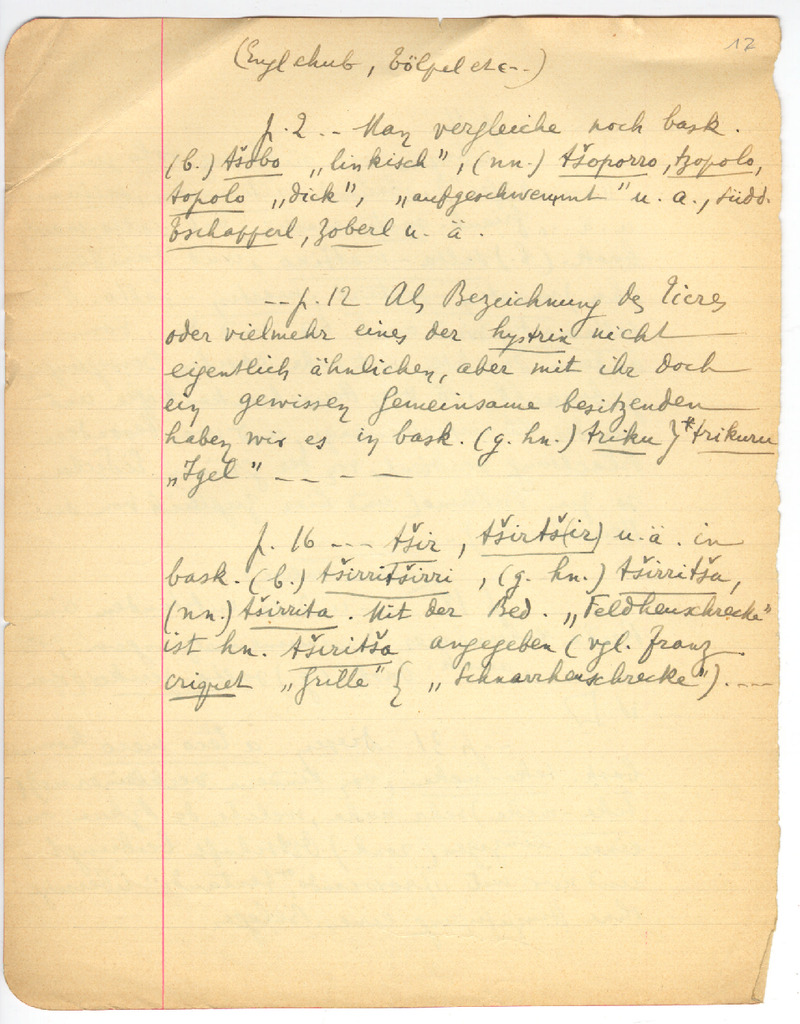 17
(Engl chub, Tölpel etc--)
p. 2 -- Man vergleiche noch bask.
(b.) tšobo „linkisch", (nn.) tšoporro, tzopolo,
topolo „dick", „aufgeschwemmt" u. a., südd.
Tschapperl, Zoberl u. ä.
-- p. 12 Als Bezeichnung des Tieres
oder vielmehr eines der hystrix nicht
eigentlich ähnlichen, aber mit ihr doch
ein gewissen Gemeinsame besitzenden
haben wir es in bask. (g. hn.) triku } *trikuru
„Igel" -- -- -- --
p. 16 --- tšir, tširtš(ir) u. ä. in
bask. (b.) tširritširri, (g. hn.) tširritša,
(nn.) tširrita. Mit der Bed. „Feldheuschrecke"
ist hn. tširitša angegeben (vgl. franz.
criquet „Grille" { „Schnarrheuschrecke"). ---